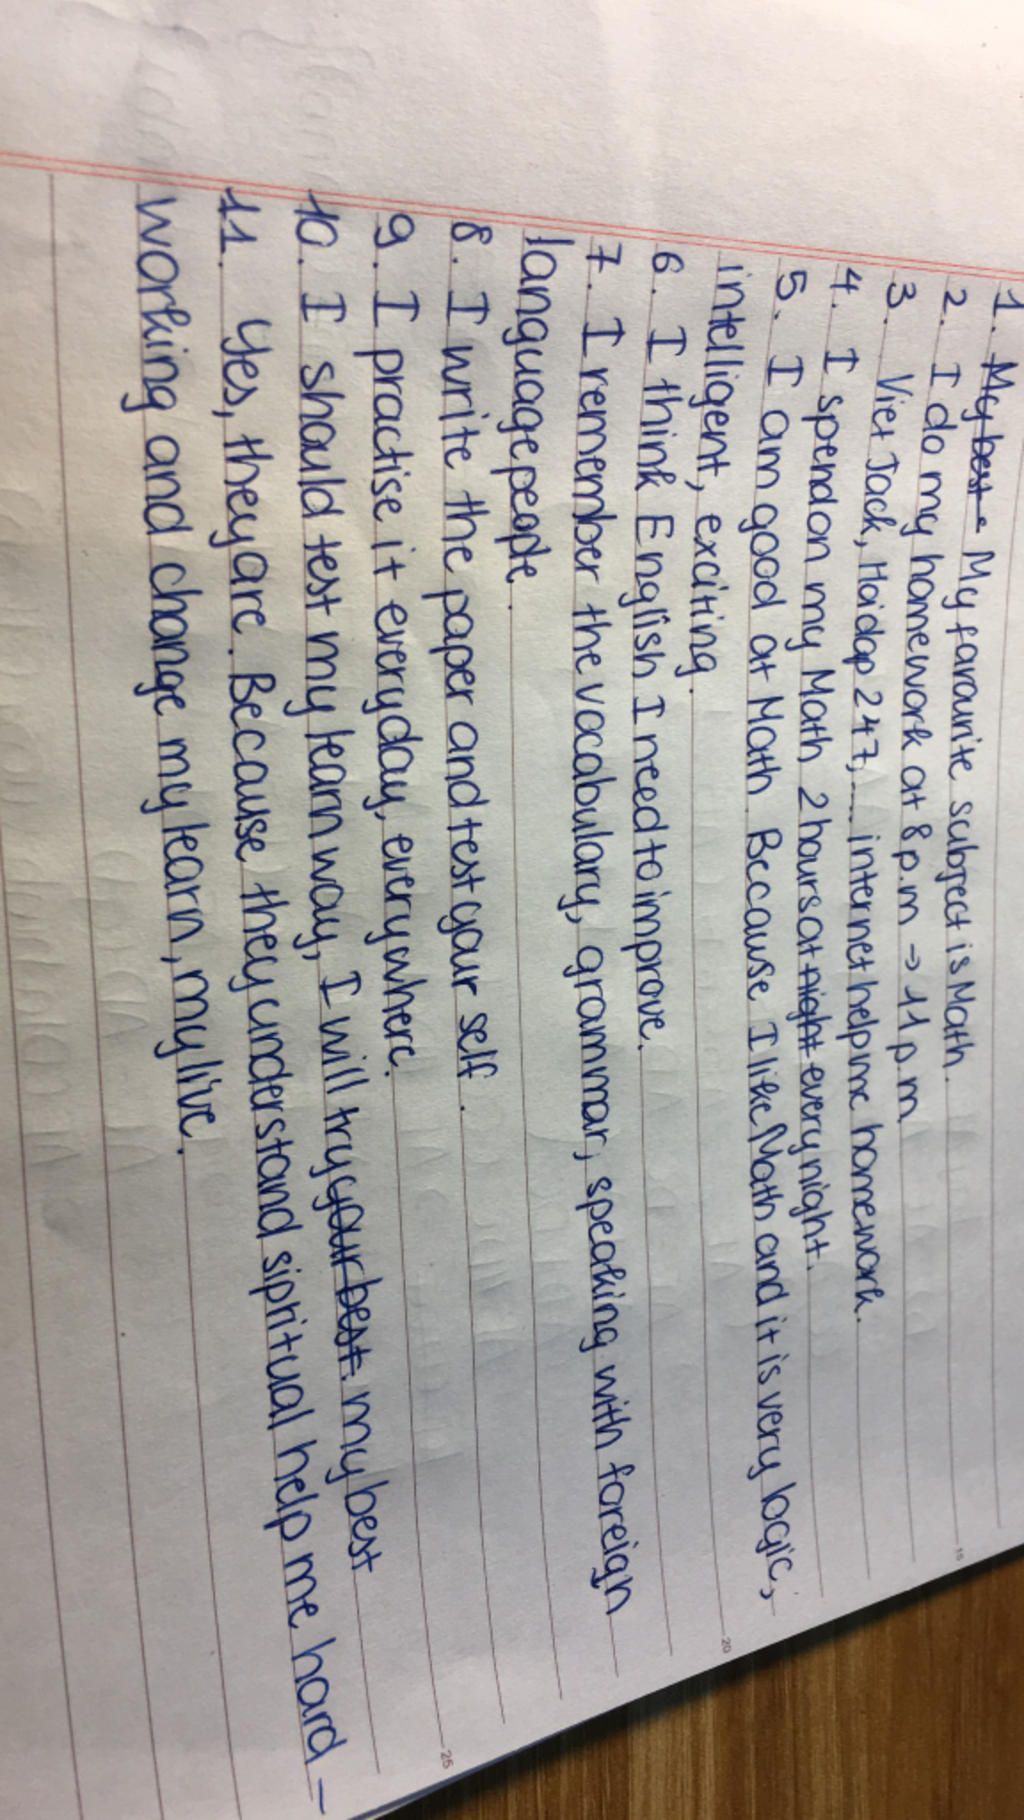 1. My best My favourite subject is Math.
2. I do my homework at 8 p.m → 11 p.m
3. Viet Jack, Hoidap 247,.... internet help me homework.
4. I spend on my Math 2 hours at night every night.
5. I am good at Math. Because I like Math and it is very logic,
intelligent, exciting.
6. I think English I need to improve.
7. I remember the vocabulary, grammar, speaking with foreign
language people.
8. I write the paper and test your self.
9. I practise it everyday, everywhere.
10. I should test my learn way, I will try your best. my best
11. Yes, they are. Because they understand sipritual help me hard -
working and change my learn, my live.
15
20
25